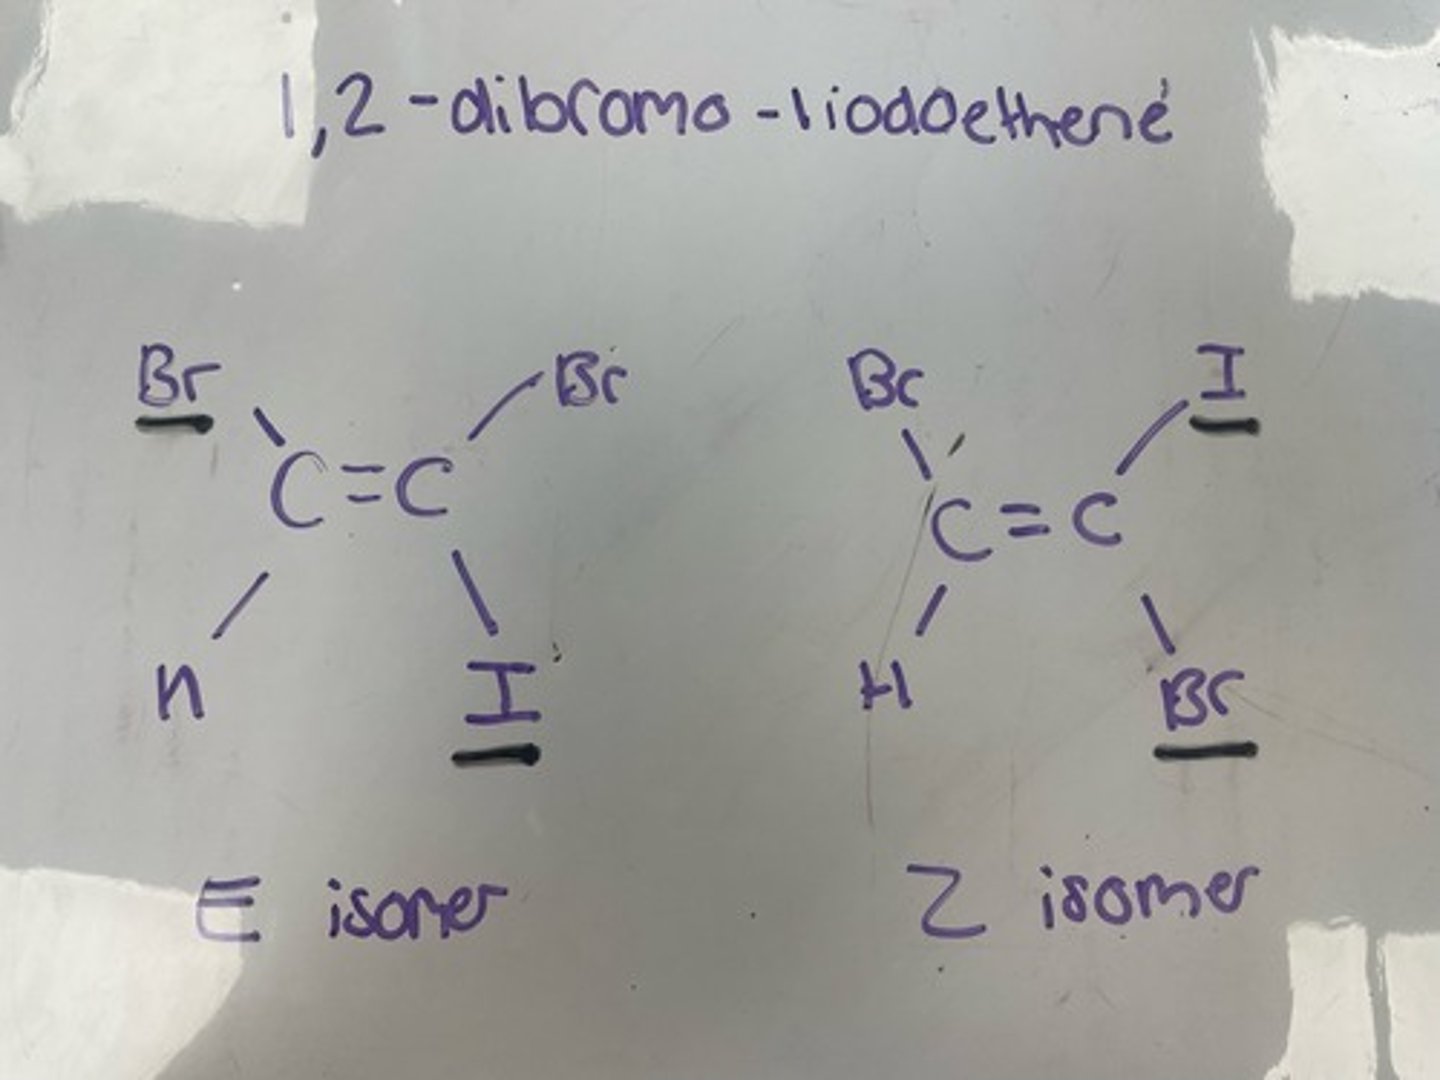 1,2-dibromo-1iodoethene
Br Br Br I
C=C C=C
H I H Br
E isomer Z isomer